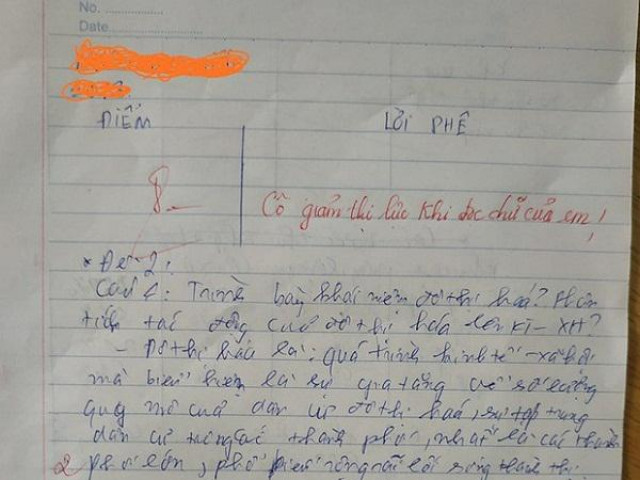 No. ..................
Date ..................
ĐIỂM
LỜI PHÊ
8
Cô giảm thị lực khi đọc chữ của em!
* Đề 2:
Câu 1: Trình bày khái niệm đô thị hoá? Phân
tích tác động của đô thị hóa lên KT-XH?
- Đô thị hóa là: quá trình kinh tế-xã hội
mà biểu hiện là sự gia tăng về số lượng
quy mô của dân cư đô thị hoá, sự tập trung
dân cư trong các thành phố, nhất là các thành
2 phố lớn, phổ biến rộng rãi lối sống thành thị